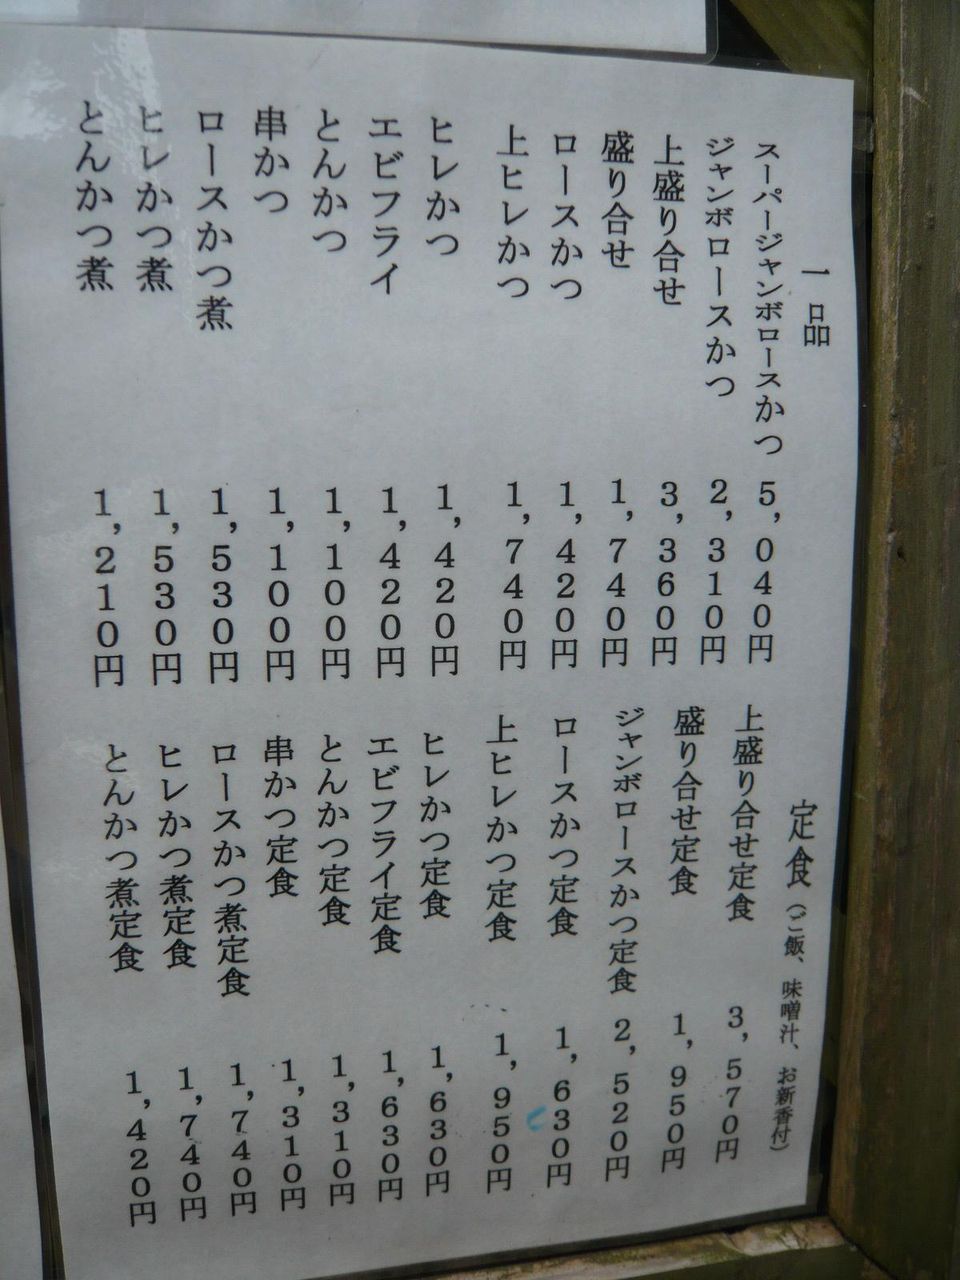 一品
スーパージャンボロースかつ 5,040円
ジャンボロースかつ 2,310円
上盛り合せ 3,360円
盛り合せ 1,740円
ロースかつ 1,420円
上ヒレかつ 1,740円
ヒレかつ 1,420円
エビフライ 1,420円
とんかつ 1,100円
串かつ 1,100円
ロースかつ煮 1,530円
ヒレかつ煮 1,530円
とんかつ煮 1,210円
定食(ご飯、味噌汁、お新香付)
上盛り合せ定食 3,570円
盛り合せ定食 1,950円
ジャンボロースかつ定食 2,520円
ロースかつ定食 1,630円
上ヒレかつ定食 1,950円
ヒレかつ定食 1,630円
エビフライ定食 1,630円
とんかつ定食 1,310円
串かつ定食 1,310円
ロースかつ煮定食 1,740円
ヒレかつ煮定食 1,740円
とんかつ煮定食 1,420円